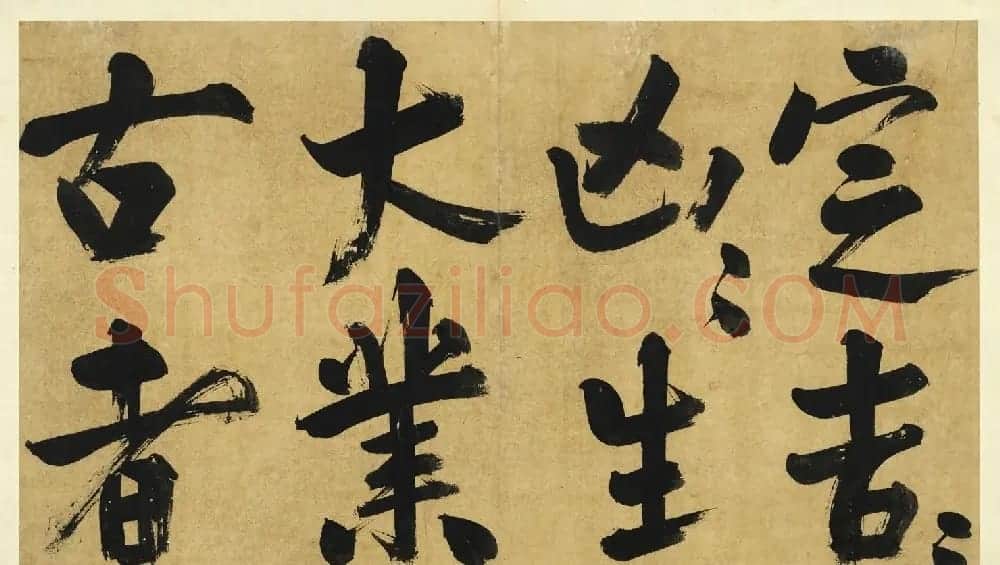 定吉〻
凶〻生
大業
古者
Shufaziliao.COM